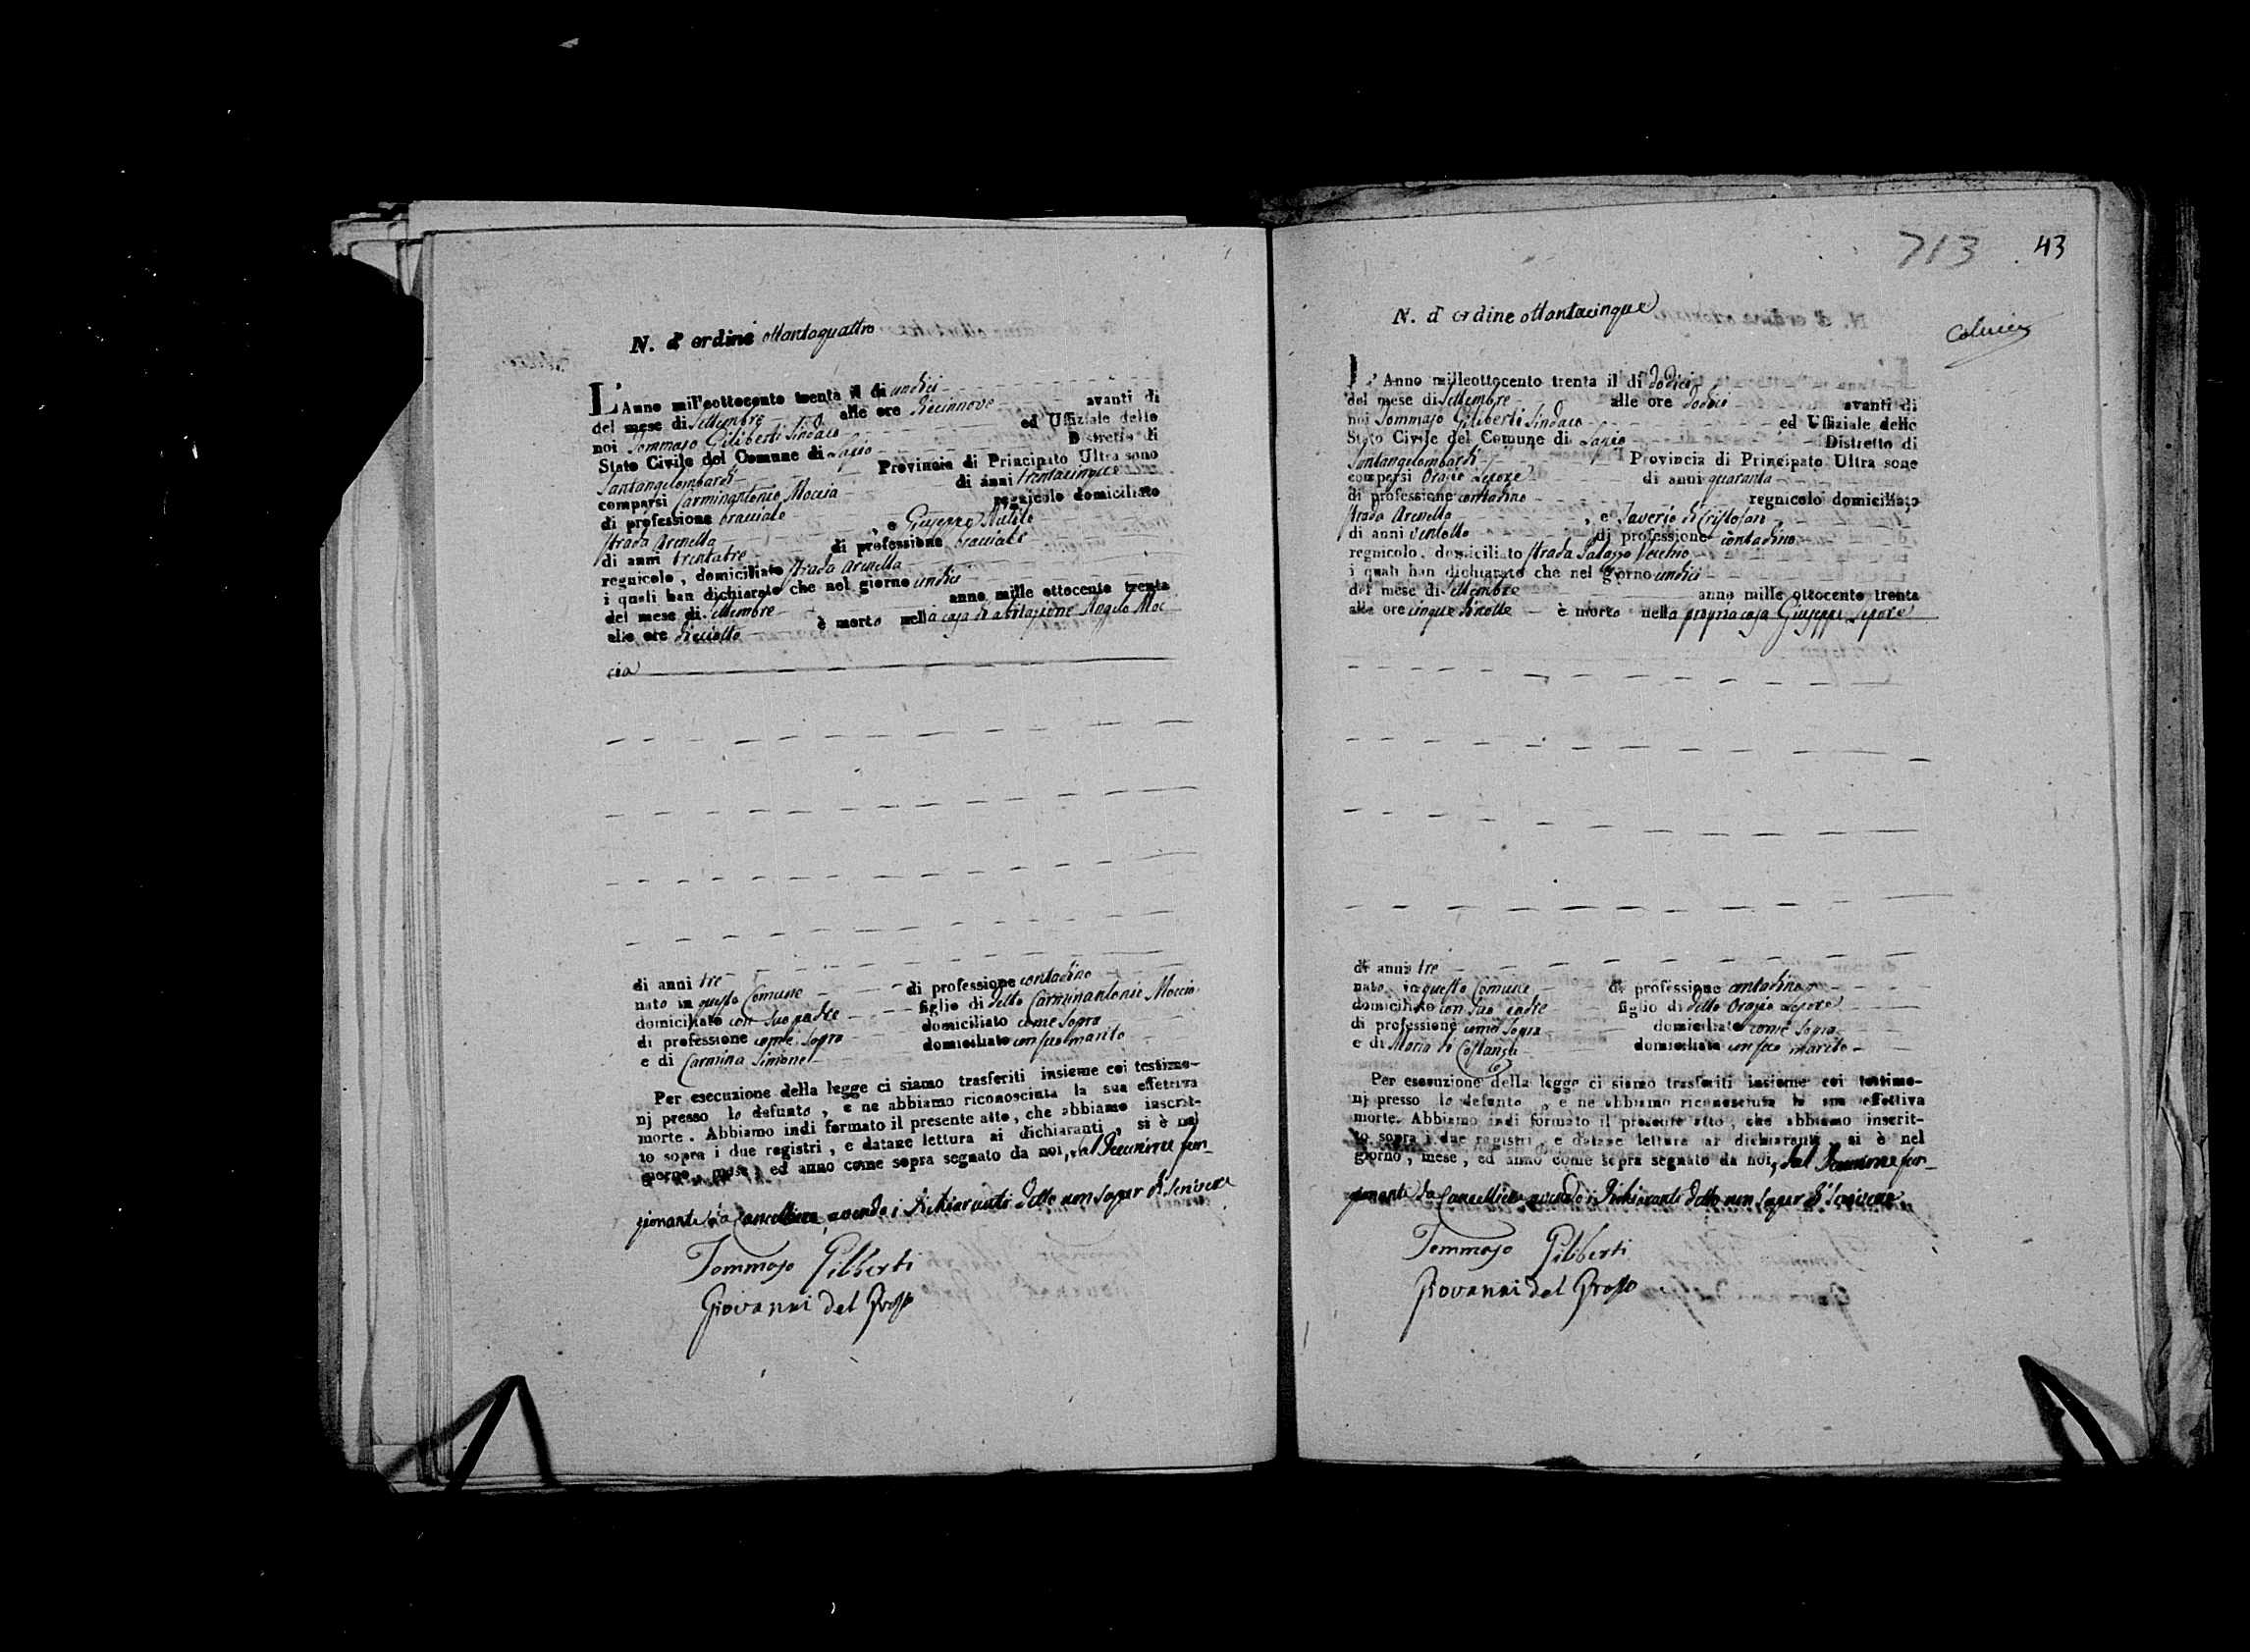 N. d' ordine ottantaquattro
L'Anno mil'eottocento trenta il di undici
del mese di Settembre alle ore diecinnove avanti di
noi Tommaso Giliberti Sindaco ed Uffiziale dello
Stato Civile del Comune di Lapio Distretto di
Santangelombardi Provincia di Principato Ultra sono
comparsi Carminantonio Moccia di anni trentacinque
di professione bracciale regnicolo domiciliato
strada Arenella , e Giuseppe
di anni trentatre di professione bracciale
regnicolo , domiciliato strada arenella
i quali han dichiarato che nel giorno undici
del mese di Settembre anno mille ottocento trenta
alle ore dieciotto è morto nella casa di abitazione Angelo Moc
cia
di anni tre di professione contadino
nato in questo Comune figlio di detto Carminantonio Moccia
domiciliato con suo padre domiciliato come sopra
di professione come sopra domiciliato con suo marito
e di Carmina Simone
Per esecuzione della legge ci siamo trasferiti insieme coi testimo-
nj presso lo defunto , e ne abbiamo riconosciuta la sua effettiva
morte . Abbiamo indi formato il presente atto , che abbiamo inscrit-
to sopra i due registri , e datane lettura ai dichiaranti , si è nel
giorno , mese , ed anno come sopra segnato da noi, e dal Decurione fun-
zionante da Cancelliere, avendo i Dichiaranti detto non saper di scrivere
Tommaso Giliberti
Giovanni del Grosso
713 43
N. d' ordine ottantacinque
L'Anno milleottocento trenta il di dodici
del mese di Settembre alle ore dodici avanti di
noi Tommaso Giliberti Sindaco ed Uffiziale dello
Stato Civile del Comune di Lapio Distretto di
Santangelombardi Provincia di Principato Ultra sono
comparsi Orazio Lepore di anni quaranta
di professione contadino regnicolo domiciliato
strada Arenella , e Saverio di Cristofaro
di anni ventotto di professione contadino
regnicolo , domiciliato strada Palazzo Vecchio
i quali han dichiarato che nel giorno undici
del mese di Settembre anno mille ottocento trenta
alle ore cinque di notte è morto nella propria casa Giuseppe Lepore
di anni tre
nato in questo Comune di professione contadino
domiciliato con suo padre figlio di detto Orazio Lepore
di professione come sopra domiciliato come sopra
e di Maria di Costanzo domiciliata con suo marito
Per esecuzione della legge ci siamo trasferiti insieme coi testimo-
nj presso lo defunto , e ne abbiamo riconosciuta la sua effettiva
morte. Abbiamo indi formato il presente atto , che abbiamo inscrit-
to sopra i due registri , e datane lettura ai dichiaranti , si è nel
giorno , mese , ed anno come sopra segnato da noi, e dal Decurione fun-
zionante da Cancelliere avendo i Dichiaranti detto non saper di scrivere
Tommaso Giliberti
Giovanni del Grosso